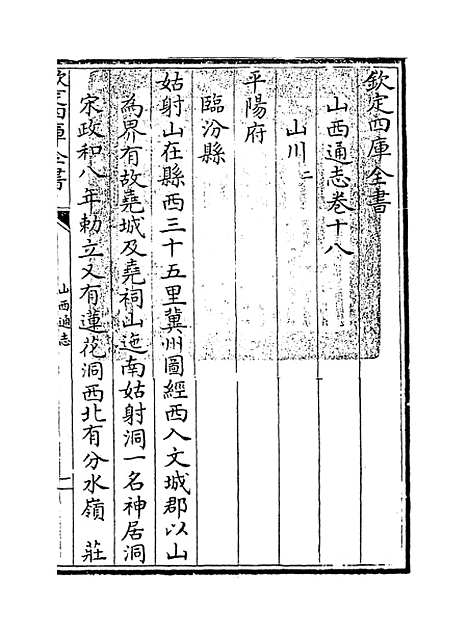 欽定四庫全書
山西通志卷十八
山川二
平陽府
臨汾縣
姑射山在縣西三十五里冀州圖經西入文城郡以山
為界有故堯城及堯祠山迤南姑射洞一名神居洞
宋政和八年勅立又有蓮花洞西北有分水嶺　莊
欽定四庫全書
山西通志
一